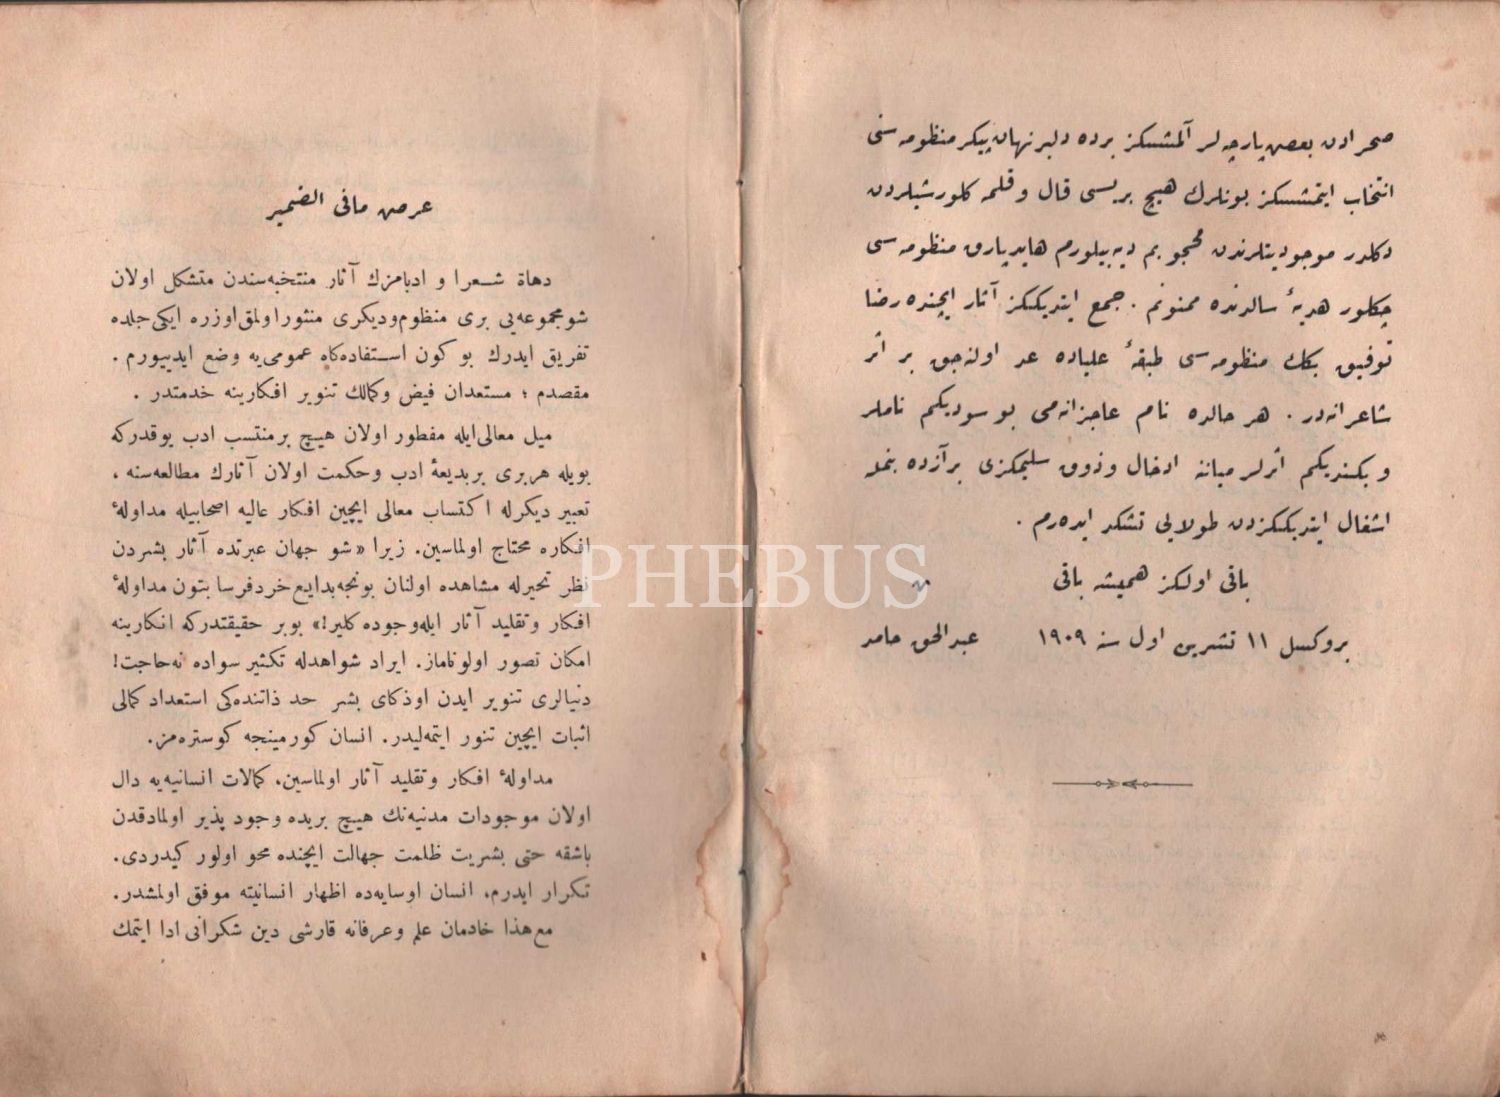 صحرادن بعض پارچه لر آلمشسكز برده دلبر نهان پیكر منظومه سنی
انتخاب ایتمشسكز بونلرك هیچ بریسی قال و قلمه كلور شیلردن
دكلدر موجودیتلرندن محجوبم دیه بیلورم هاید پارق منظومه سی
چكلور هدیهٔ سالدنده ممنونم . جمع ایتدیككز آثار ایچنده رضا
توفیق بكك منظومه سی طبقهٔ علیاده عد اولنه جق بر اثر
شاعرانه در . هر حالده نام عاجزانه می بو سودیكم ناملر
و بكندیكم اثرلر میاننه ادخال و ذوق سلیمكزی بر آزده بنمله
اشغال ایتدیككزدن طولایی تشكر ایده رم .
باقی اولكز همیشه باقی
بروكسل ١١ تشرین اول سنه ١٩٠٩ عبدالحق حامد
عرض مافی الضمیر
دهاة شعرا و ادبامزك آثار منتخبه سندن متشكل اولان
شو مجموعه یی بری منظوم و دیكری منثور اولمق اوزره ایكی جلده
تفریق ایدرك بو كون استفاده كاه عمومی یه وضع ایدییورم .
مقصدم ؛ مستعدان فیض و كمالك تنویر افكارینه خدمتدر .
میل معالی ایله مفطور اولان هیچ بر منتسب ادب یوقدركه
بویله هر بری بر بدیعهٔ ادب و حكمت اولان آثارك مطالعه سنه ،
تعبیر دیكرله اكتساب معالی ایچین افكار عالیه اصحابیله مداولهٔ
افكاره محتاج اولماسین. زیرا «شو جهان عبرتده آثار بشردن
نظر تحیرله مشاهده اولنان بونجه بدایع خردفرسا بتون مداولهٔ
افكار و تقلید آثار ایله وجوده كلیر!» بو بر حقیقتدركه انكارینه
امكان تصور اولوناماز. ایراد شواهدله تكثیر سواده نه حاجت!
دنیالری تنویر ایدن او ذكای بشر حد ذاتنده كی استعداد كمالی
اثبات ایچین تنور ایتمه لیدر. انسان كورمینجه كوستره مز.
مداولهٔ افكار و تقلید آثار اولماسین، كمالات انسانیه یه دال
اولان موجودات مدنیه نك هیچ بریده وجود پذیر اولمادقدن
باشقه حتی بشریت ظلمت جهالت ایچنده محو اولور كیدردی.
تكرار ایدرم، انسان اوسایه ده اظهار انسانیته موفق اولمشدر.
مع هذا خادمان علم و عرفانه قارشی دین شكرانی ادا ایتمك
PHEBUS